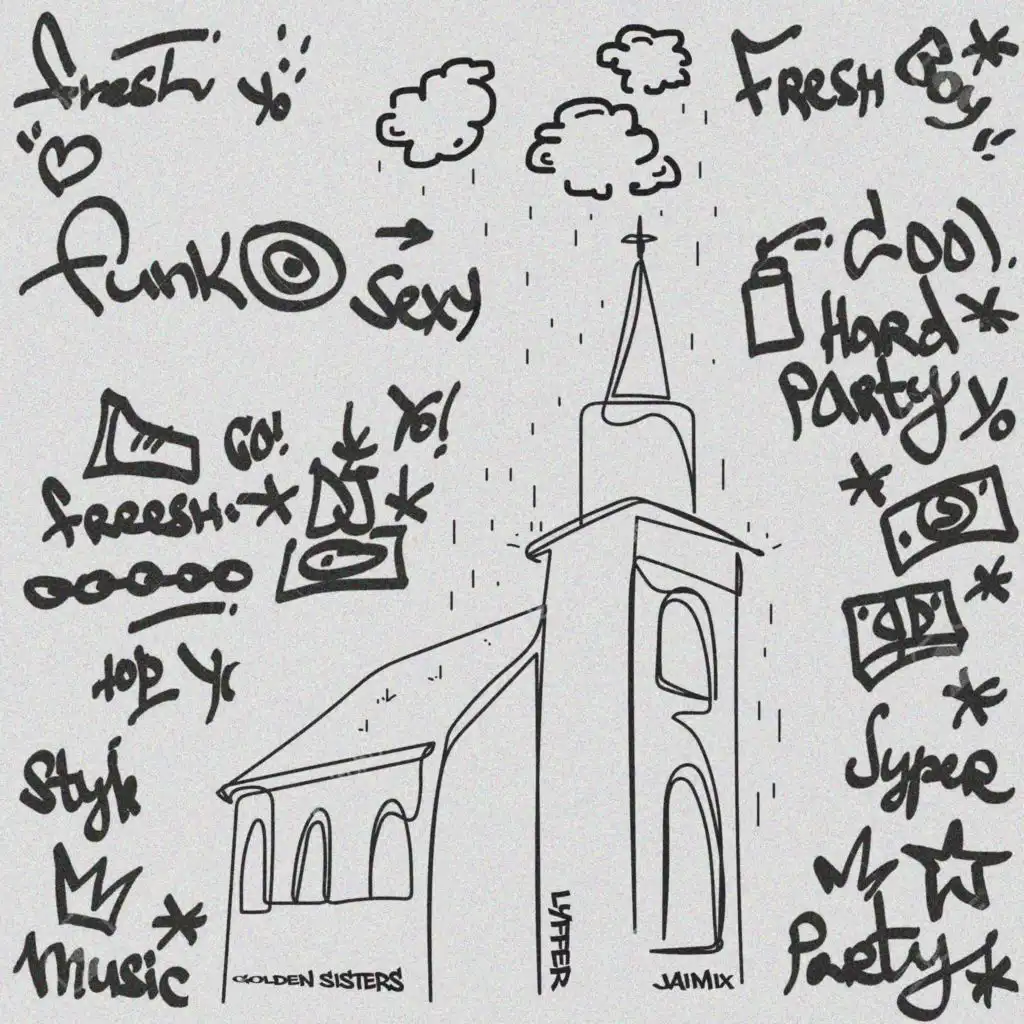 fresh yo
Fresh Boy
funk
sexy
Cool.
Hard
Party yo
GO! Yo!
freesh. DJ
top Yo
Style
Syper
Music
Party
LYFFER
GOLDEN SISTERS
JAIMIX